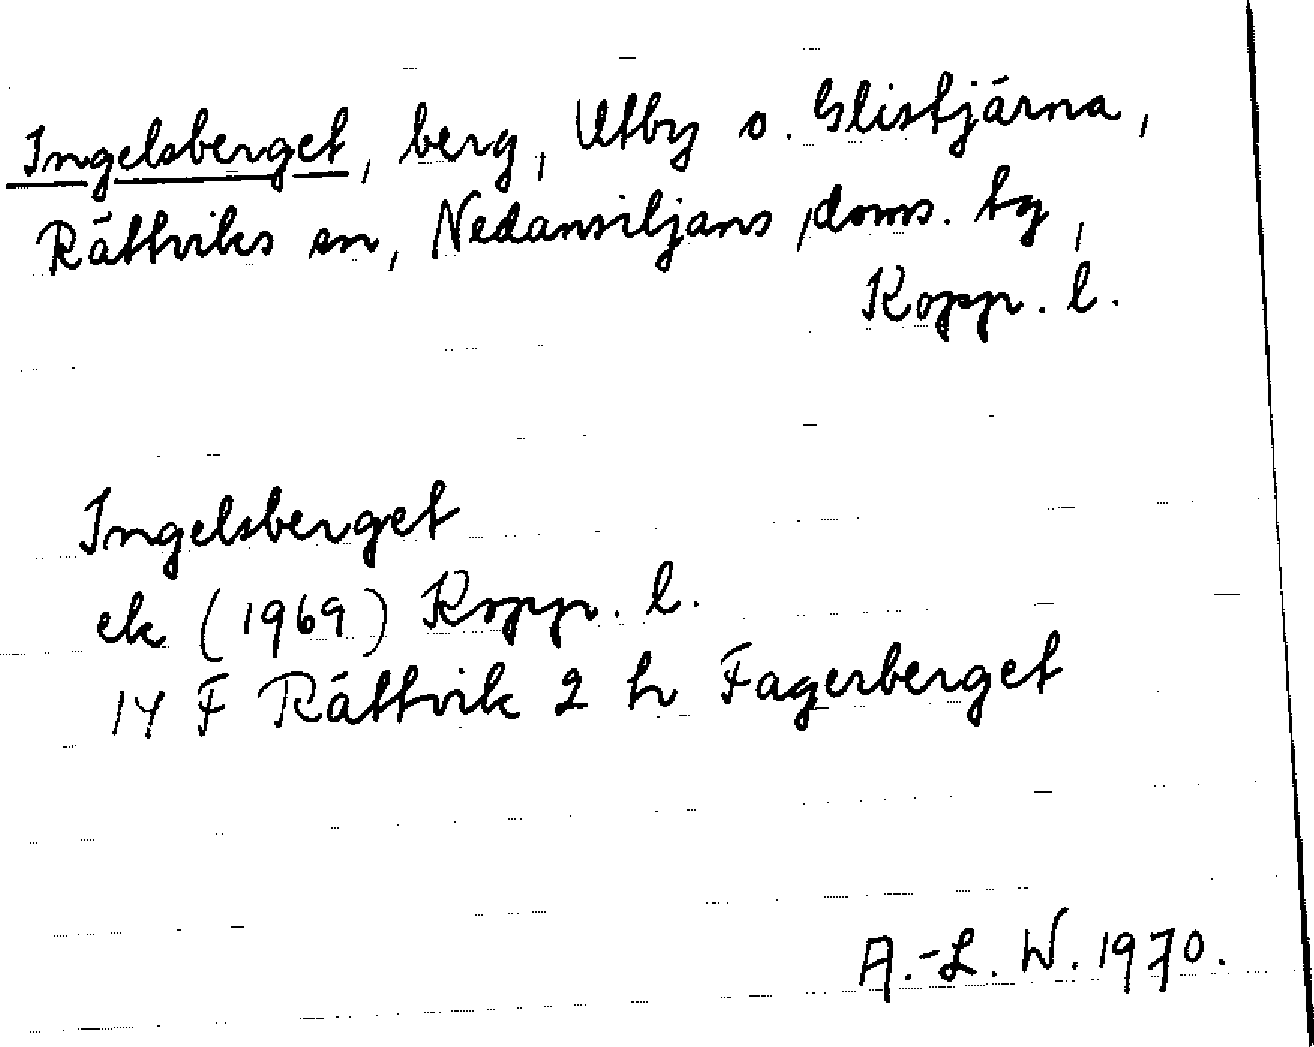 Ingelsberget, berg, Utby o. Glistjärna,
Rättviks sn, Nedansiljans doms. tg,
Kopp. l.
Ingelsberget
ek (1969) Kopp. l.
14 F Rättvik 2 h Fagerberget
A.-L. W. 1970.